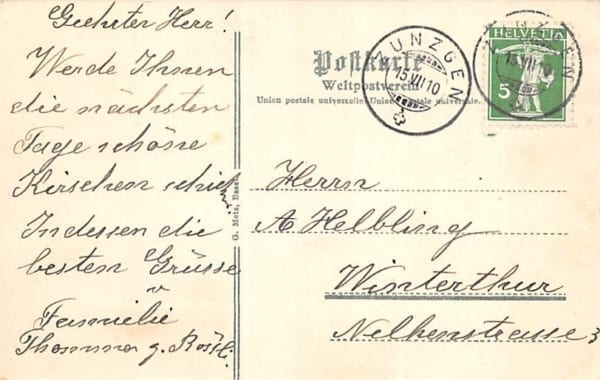 Geehrter Herr!
Werde Ihnen
die nächsten
Tage schöne
Kirschen
Indessen die
besten Grüsse
Familie
Thommen z.
G. Metz, Basel
Postkarte
Weltpostverein
Union postale universelle.
ZUNZGEN
15.VII.10
HELVETIA
5
15.VII.10
Herrn
A Helbling
Winterthur
Nelkenstrasse 3